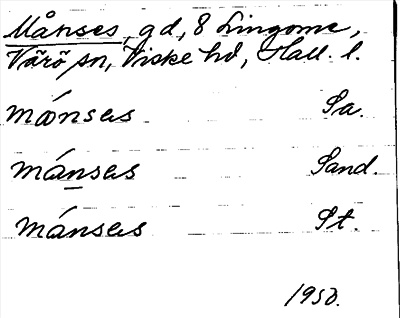 Månses, gd, 8 Lingome,
Värö sn, Viske hd, Hall. l.
mánses Sa.
mánses Sand.
mánses St.
1950.